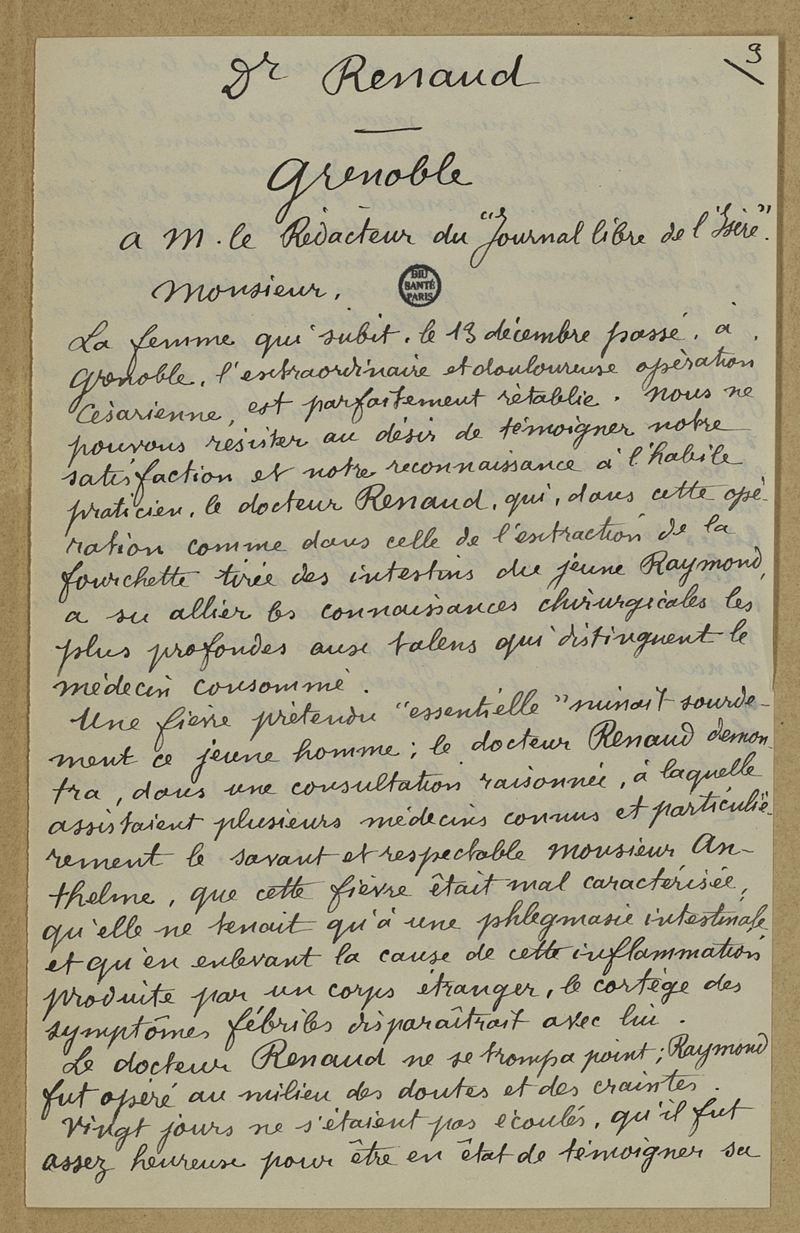 9
Dr Renaud
Grenoble
a M. le Rédacteur du "Journal libre de l'Isère".
Monsieur,
BIU
SANTÉ
PARIS
La femme qui subit, le 13 décembre passé, à
Grenoble, l'extraordinaire et douloureuse opération
Césarienne, est parfaitement rétablie. Nous ne
pouvons résister au désir de témoigner notre
satisfaction et notre reconnaissance à l'habile
praticien, le docteur Renaud, qui, dans cette opé-
ration comme dans celle de l'extraction de la
fourchette tirée des intestins du jeune Raymond,
a su allier les connaissances chirurgicales les
plus profondes aux talens qui distinguent le
médecin consommé.
Une fièvre prétendu "essentielle" minait sourde-
ment ce jeune homme; le docteur Renaud démon-
tra, dans une consultation raisonnée, à laquelle
assistaient plusieurs médecins connus et particuliè-
rement le savant et respectable Monsieur An-
thelme, que cette fièvre était mal caractérisée,
qu'elle ne tenait qu'à une phlegmasie intestinale
et qu'en enlevant la cause de cette inflammation
produite par un corps étranger, le cortége des
symptômes fébriles disparaîtrait avec lui.
Le docteur Renaud ne se trompa point; Raymond
fut opéré au milieu des doutes et des craintes.
Vingt jours ne s'étaient pas écoulés, qu'il fut
assez heureux pour être en état de témoigner sa